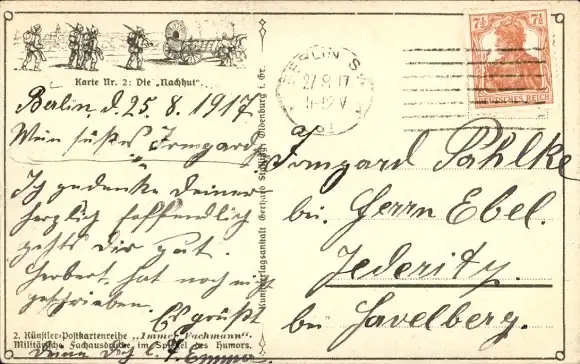 Karte Nr. 2: Die „Nachhut".
Berlin, d. 25.8.1917
Mein süßes Irmgard
Ich gedenke Deiner
herzlich hoffendlich
gehts Dir gut.
Herbert hat noch nicht
geschrieben.
Es grüßt
Deine
Emma
2. Künstler-Postkartenreihe „Immer Fachmann".
Militärische Fachausdrücke im Spiegel des Humors.
Kunstverlagsanstalt Gerhard Stalling, Oldenburg i. Gr.
BERLIN
27.8.17
11-12 V
7½ 7½
DEUTSCHES REICH
Irmgard Pahlke
bei Herrn Ebel.
Jederitz.
bei Havelberg.